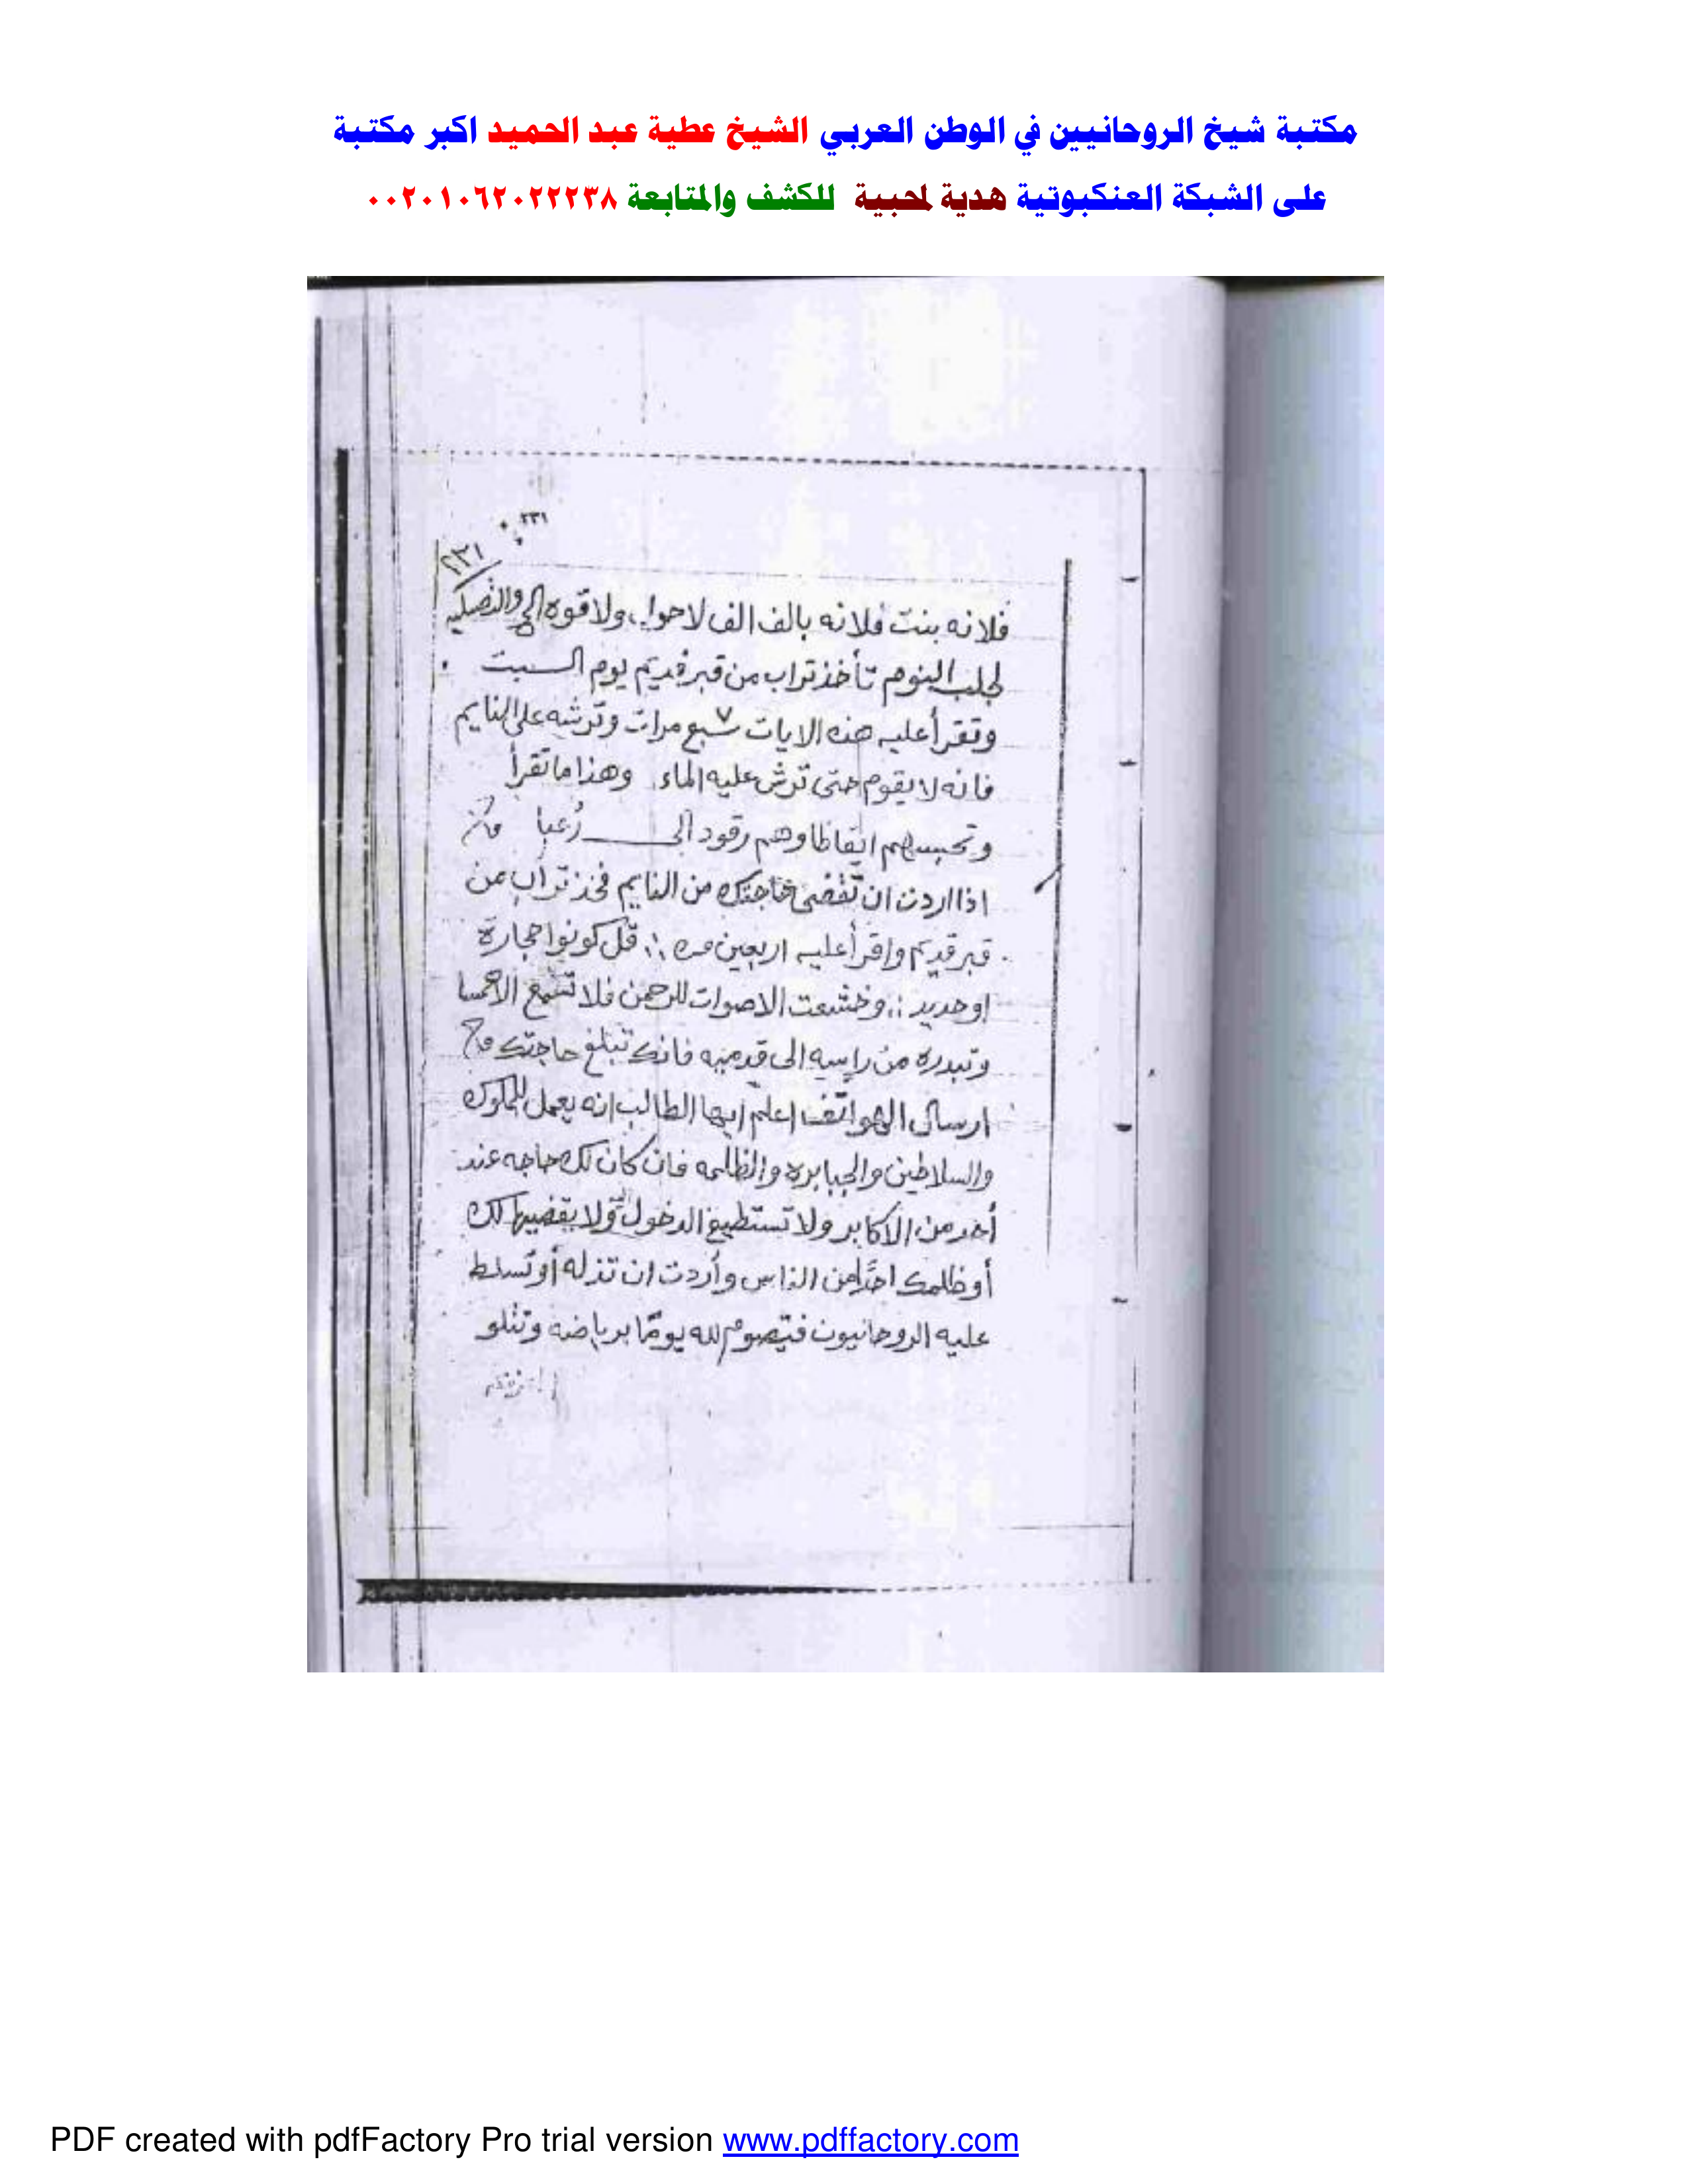 مكتبة شيخ الروحانيين في الوطن العربي الشيخ عطية عبد الحميد اكبر مكتبة
على الشبكة العنكبوتية هدية لمحبية للكشف والمتابعة ٠٠٢٠١٠٦٢٠٢٢٢٣٨
٢٣١
٢٣١
فلانه بنت فلانه بالف الف لاحول ولاقوه
لجلب النوم تأخذ تراب من قبر قديم يوم السبت
وتقرأ عليه هذه الايات سبع مرات وترشه على النايم
فانه لا يقوم حتى ترش عليه الماء وهذا ما تقرأ
وتحسبهم ايقاظا وهم رقود الى رُعبا
اذا اردت ان تقضى حاجتك من النايم فخذ تراب من
قبر قديم واقرأ عليه اربعين مره قل كونوا حجارة
او حديد وخشعت الاصوات للرحمن فلا تسمع الا همسا
وتبدره من راسه الى قدميه فانك تبلغ حاجتك
ارسال الهواتف اعلم ايها الطالب انه يعمل للملوك
والسلاطين والجبابره والظلمه فان كان لك حاجه عند
أحد من الاكابر ولا تستطيع الدخول ولا يقضيها لك
أو ظلمك احدًا من الناس وأردت ان تذله أو تسلط
عليه الروحانيون فتصوم لله يومًا برياضه وتتلو
PDF created with pdfFactory Pro trial version www.pdffactory.com